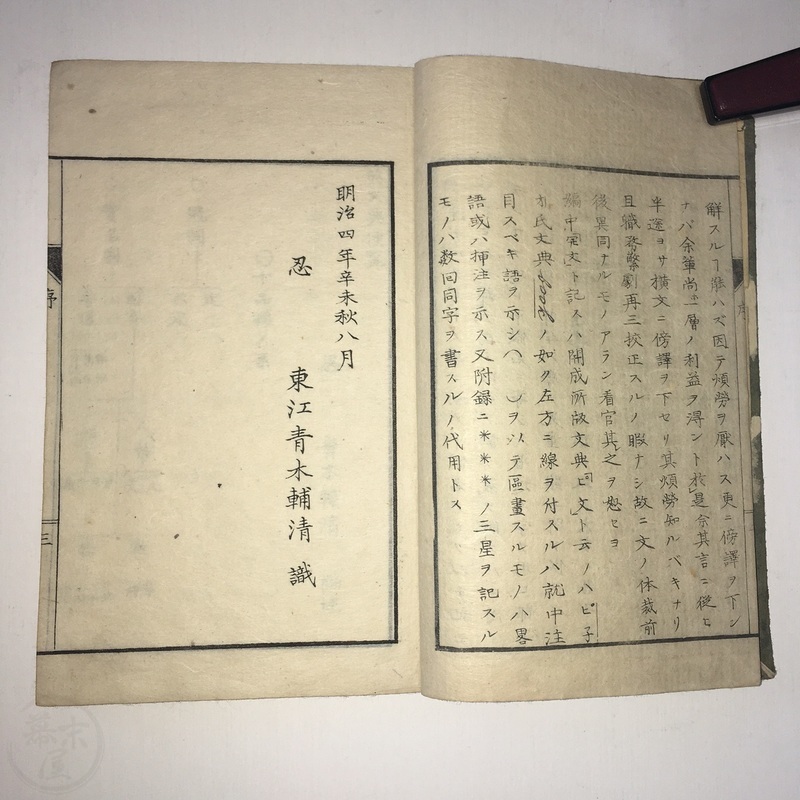 解スルヿ能ハズ因テ煩勞ヲ厭ハス更ニ傍譯ヲ下シ
ナバ余輩尚一層ノ利益ヲ得ント於是余其言ニ從ヒ
半遂ヨサ横文ニ傍譯ヲ下セリ其煩勞知ルベキナリ
且職務繁劇再三挍正スルノ暇ナシ故ニ文ノ体裁前
後異同ナルモノアラン看官其之ヲ恕セヨ
編中「完文」ト記スハ開成所版文典ヒ「文」ト云ノハピ子
氏文典 good ノ如ク左方ニ線ヲ付スルハ就中注
目スベキ語ヲ示シ( )ヲ以テ區畫スルモノハ畧
語或ハ挿注ヲ示ス又附録ニ***ノ三星ヲ記スル
モノハ数回同字ヲ書スルノ代用トス
序
明治四年辛未秋八月
忍 東江青木輔清 識
序
三
幕末屋